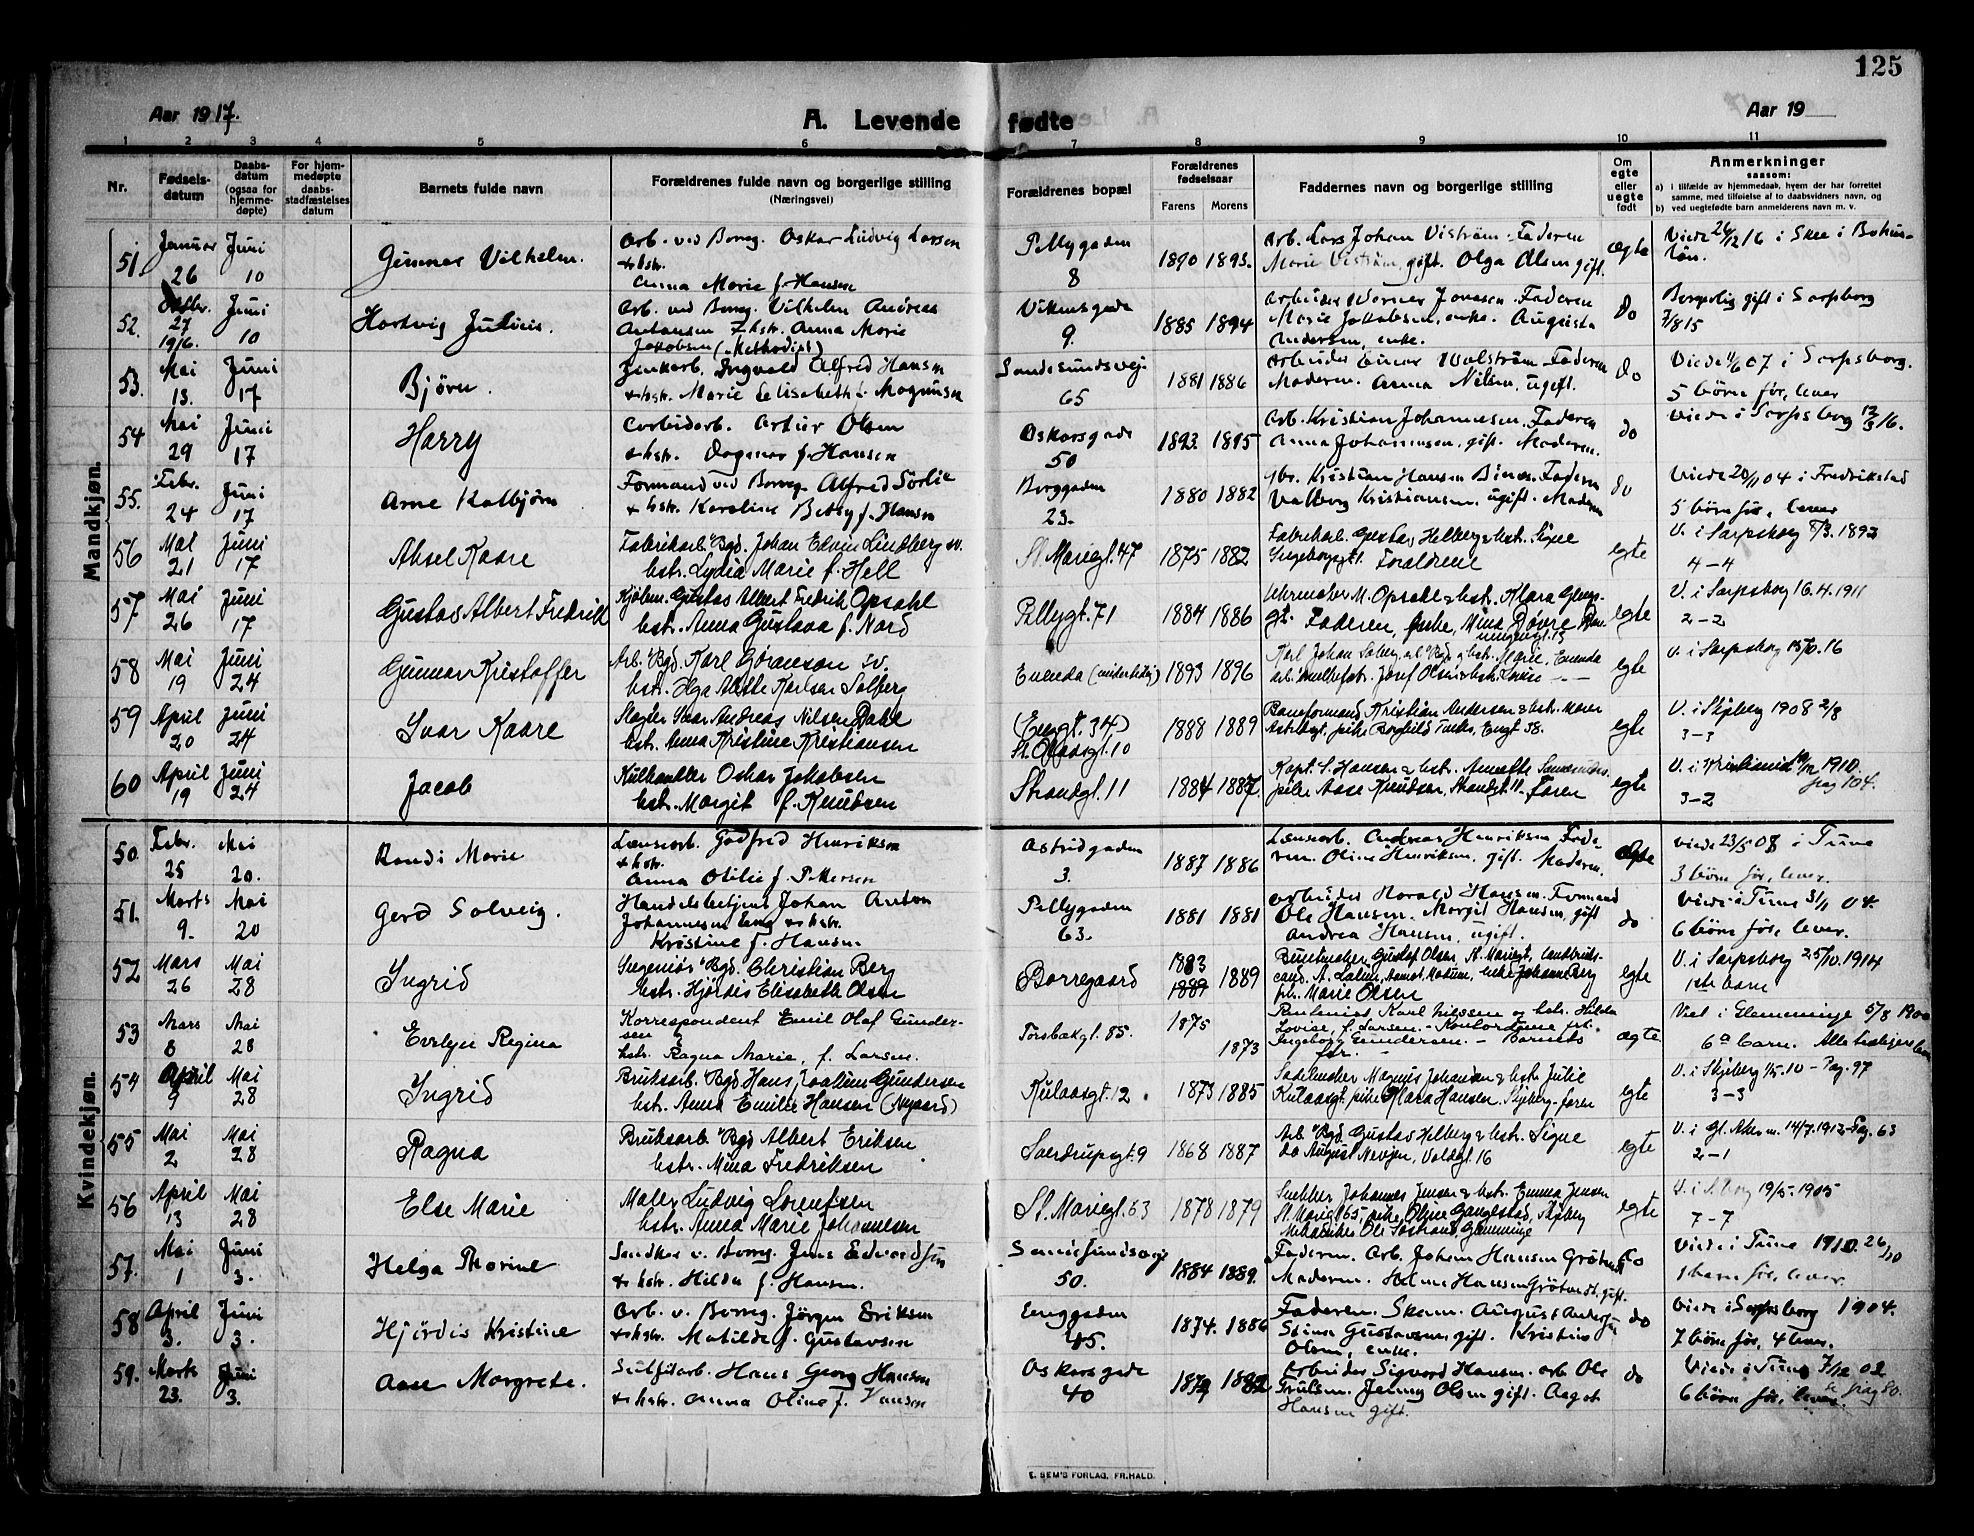 125
Aar 1917.
A. Levende fødte
Aar 19
1 2 3 4 5 6 7 8 9 10 11
Nr.
Fødsels-
datum
Daabs-
datum
(ogsaa for
hjemme-
døpte)
For hjem-
medøpte
daabs-
stadfæstelses
datum
Barnets fulde navn
Forældrenes fulde navn og borgerlige stilling
(Næringsvei)
Forældrenes bopæl
Forældrenes
fødselsaar
Farens Morens
Faddernes navn og borgerlige stilling
Om
egte
eller
uegte
født
Anmerkninger
saasom:
a) i tilfælde av hjemmedaab, hvem der har forrettet
samme, med tilføielse af to daabsvidners navn, og
b) ved uegtefødte barn anmelderens navn m. v.
Mandkjøn.
51 Januar 26 Juni 10 Gunnar Vilhelm. Arb. ved Borreg. Oskar Ludvig Larsen
& hstr.
Anna Marie f. Hansen
Pellygaden 8 1890 1893. Arb. Lars Johan Viström. Faderen
Marie Viström, gift. Olga Olsen gift. ægte Viede 26/12 16 i Skee i Bohus-
län.
52. Oktbr. 27 1916. Juni 10 Hartvig Julius. Arb. ved Borreg. Vilhelm Andreas
Antonsen & hstr. Anna Marie
Jakobsen (Methodist)
Vikensgade 9. 1885 1894 Arbeider Werner Jonasen. Faderen
Marie Jakobsen, enke. Augusta
Andersen, enke. do Borgerlig gift i Sarpsborg
7/8 15
53. Mai 13. Juni 17 Bjørn. Zinkarb. Ingvald Alfred Hansen
& hstr. Marie Elisabeth f. Magnusen
Sandesundsvei. 65 1881 1886 Arbeider Einar Walström. Faderen
Moderen. Anna Nilsen, ugift. do Viede 07 i Sarpsborg.
5 børn før, lever
54 Mai 29 Juni 17 Harry Carbidarb. Artur Olsen
& hstr. Dagmar f. Hansen
Oskarsgade 50 1893. 1895 Arb. Kristian Johannesen. Faderen
Anna Johannesen, gift. Moderen. do Viede i Sarpsborg 16.
55. Febr. 24 Juni 17 Arne Kolbjørn Formand ved Borreg. Alfred Sørlie
& hstr. Karoline Betsy f. Hansen
Borggaden 23. 1880 1882 Kristian Hansen Faderen
Valborg Kristiansen. ugift. Moderen do Viede 04 i Fredrikstad
5 børn før, lever
56 Mai 21 Juni 17 Aksel Kaare Fabrikarb. Bgd. Johan Edvin Lindberg sv.
hstr. Lydia Marie f. Hell
St. Mariegt. 47 1875 1882 Fabrikarb. Gustav Helberg & hstr. Signe
Ingeborggt. Forældrene egte V. i Sarpsborg 8/3. 1893
4 – 4
57 Mai 26 Juni 17 Gustav Albert Fredrik Kjøbm. Gustav Albert Fredrik Opsahl
hstr. Anna Gustava f. Nord
Pellygt. 71 1884 1886 Urmaker M. Opsahl & hstr. Klara
gt. Faderen, Enke, Mina Døvre egte V. i Sarpsborg 16.4. 1911
2 – 2
58 Mai 19 Juni 24 Gunnar Kristoffer Arb. Bgd. Karl Gøranson sv.
hstr. Helga Karlsen Solberg
Enenda (midlertidig) 1893 1896 Karl Johan Solberg Bgd & hstr. Marie, Enenda
Josef Olsen & hstr. egte V. i Sarpsborg 16
59 April 20 Juni 24 Ivar Kaare Slagter Ivar Andreas Nilsen Dahl
hstr. Anna Kristine Kristiansen
(Enggt. 34)
St. Olavsgt. 10 1888 1889 Baneformand Kristian Andersen & hstr.
Astridgt. pike Borghild Enggt 58. egte V. i Skjeberg 1908 2/8
3 – 3
60 April 19 Juni 24 Jacob Kulhandler Oskar Jakobsen
hstr. Margit f. Knudsen
Strandgt. 11 1884 1887 Kapt. S. Hansen & hstr. Annette
pike Aase Knudsen, Strandgt. 11. Faren egte V. i 1910.
3 – 2 pag 104.
Kvindekjøn.
50. Febr. 25 Mai 20. Randi Marie Lænsearb. Godfred Henriksen
& hstr.
Anna Otilie f. Pettersen
Astridgaden 3. 1887 1886 Lænsearb. Andreas Henriksen Fade-
ren. Oline Henriksen, gift. Moderen. ægte Viede 23/5 08 i Tune
3 børn før, lever.
51. Marts 9. Mai 20 Gerd Solveig. Handelsbetjent Johan Anton
Johannesen & hstr.
Kristine f. Hansen
Pellygaden 63. 1881 1881 Arbeider Harald Hansen. Formand
Ole Hansen. Margit Hansen, gift
Andrea Hansen, ugift. do Viede i Tune 04.
6 børn før, lever.
52 Mars 26 Mai 28 Ingrid Ingeniør Bgd. Christian Berg
hstr. Hjördis Elisabeth Olsen
Borregaard 1883 1889 1889 Buntmaker Gustaf Olsen, St. Mariegt,
cand. A. Enke Johanne Berg
frk. Marie Olsen egte V. i Sarpsborg 25/10. 1914
1ste barn
53 Mars 8 Mai 28 Evelyn Regina Korrespondent Emil Olaf Gunder-
sen
hstr. Ragna Marie, f. Larsen.
Torsbækgt. 85. 1875 1873 Karl Nilssen og hstr. Hilda
Lovise, f. Larsen. – Kontordame frk.
Ingeborg Gundersen. – Barnets
far. ægte Viet i Glemminge 5/8 1900
6te barn.
54 April 9 Mai 28 Ingrid Bruksarb. Bgd Hans Joakim Gundersen
hstr. Anna Emilie Hansen (Nygaard)
Kulaasgt. 12. 1873 1885 Sadelmaker Magnus Johansen & hstr. Julie
Kulaasgt. pike Klara Hansen, Skjeberg. faren egte V. i Skjeberg 1/5. 10 – Pag. 97
3 – 3
55 Mai 2 Mai 28 Ragna Bruksarb. Bgd Albert Eriksen
hstr. Mina Fredriksen
Sverdrupsgt. 9 1868 1887 Arb. Bgd. Gustav Helberg & hstr. Signe
do August Nevjen, Voldgt. 16 egte V. i Gl. Aker 14/7. 1912 – Pag. 63
2 – 1
56 April 13 Mai 28 Else Marie Maler Ludvig Lorentzen
hstr. Anna Marie Johannesen
St. Mariegt. 63 1878 1879 Snekker Johannes Jensen & hstr. Emma Jensen
St. Mariegt 65, pike Oline Gangestad, Skjeberg
Ole Sostrand, Glemminge egte V. i S.borg 19/5. 1905
7 – 7
57. Mai 1 Juni 3. Helga Thorine Sandkar v. Borreg. Jens Edvardsen
& hstr. Hilda f. Hansen.
Sandesundsvei 50. 1884 1889. Faderen. Arb. Johan Hansen
Moderen. Helene Hansen gift. do Viede i Tune 1910. 26/10
1 barn før, lever.
58 April 3. Juni 3. Hjördis Kristine Arb. v. Borreg. Jörgen Eriksen
& hstr. Matilde f. Gustavsen
Enggaden 45. 1874. 1886 Faderen. Skom. August Andersen
Stina Gustavsen, gift. Kristine
Olsen, enke. do Viede i Sarpsborg 1904.
7 børn før, 4 lever.
59. Marts 23. Juni 3. Aase Margrete. Sulfitarb. Hans Georg Hansen
& hstr. Anna Oline f. Hansen
Oskarsgade 40 1879 1882 Arbeider Sigvard Hansen. arb Ole
Trulsen. Jenny Olsen gift. Aagot
Hansen gift. do Viede i Tune 7/12 02
6 børn før, lever. pag 80.
E. SEM'S FORLAG, FR.HALD.